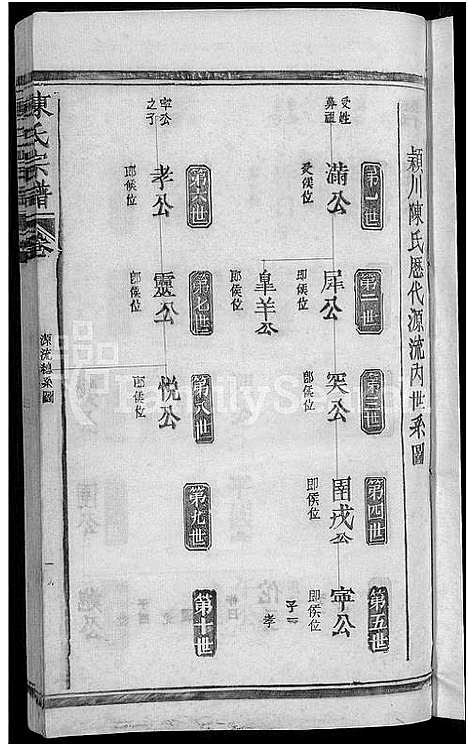 潁川陳氏歷代源流內世系圖
第一世
受姓鼻祖
滿公
受侯位
第二世
犀公
即侯位
皐羊公
即侯位
第三世
突公
即侯位
第四世
圉戎公
即侯位
第五世
寧公
即侯位
子一
孝
第六世
寧公之子
孝公
即侯位
第七世
靈公
即侯位
第八世
悅公
即侯位
第九世
第十世
陳氏宗譜
卷
源流總系圖
一